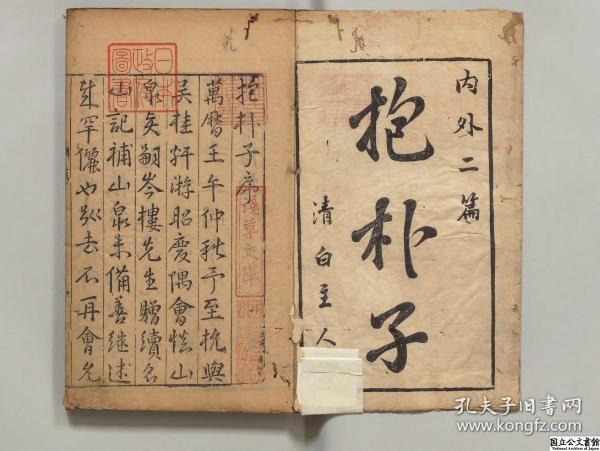 内外二篇
抱朴子
清白主人
抱朴子序
萬曆壬午仲秋予至杭與
吳桂軒游昭慶隅會慎山
泉矣嗣岑樓先生贈續名
山記補山泉未備善継述
罕儷也以去不再會尤
日本
政府
圖書
淺草文庫
孔夫子旧书网
www.kongfz.com
国立公文書館
National Archives of Japan